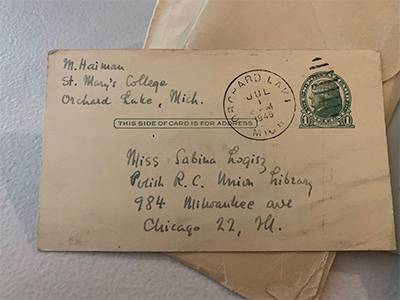 M. Haiman
St. Mary's College
Orchard Lake, Mich.
ORCHARD LAKE
JUL
1
PM
1946
MICH
THIS SIDE OF CARD IS FOR ADDRESS
Miss Sabina Logisz
Polish R. C. Union Library
984 Milwaukee ave
Chicago 22, Ill.